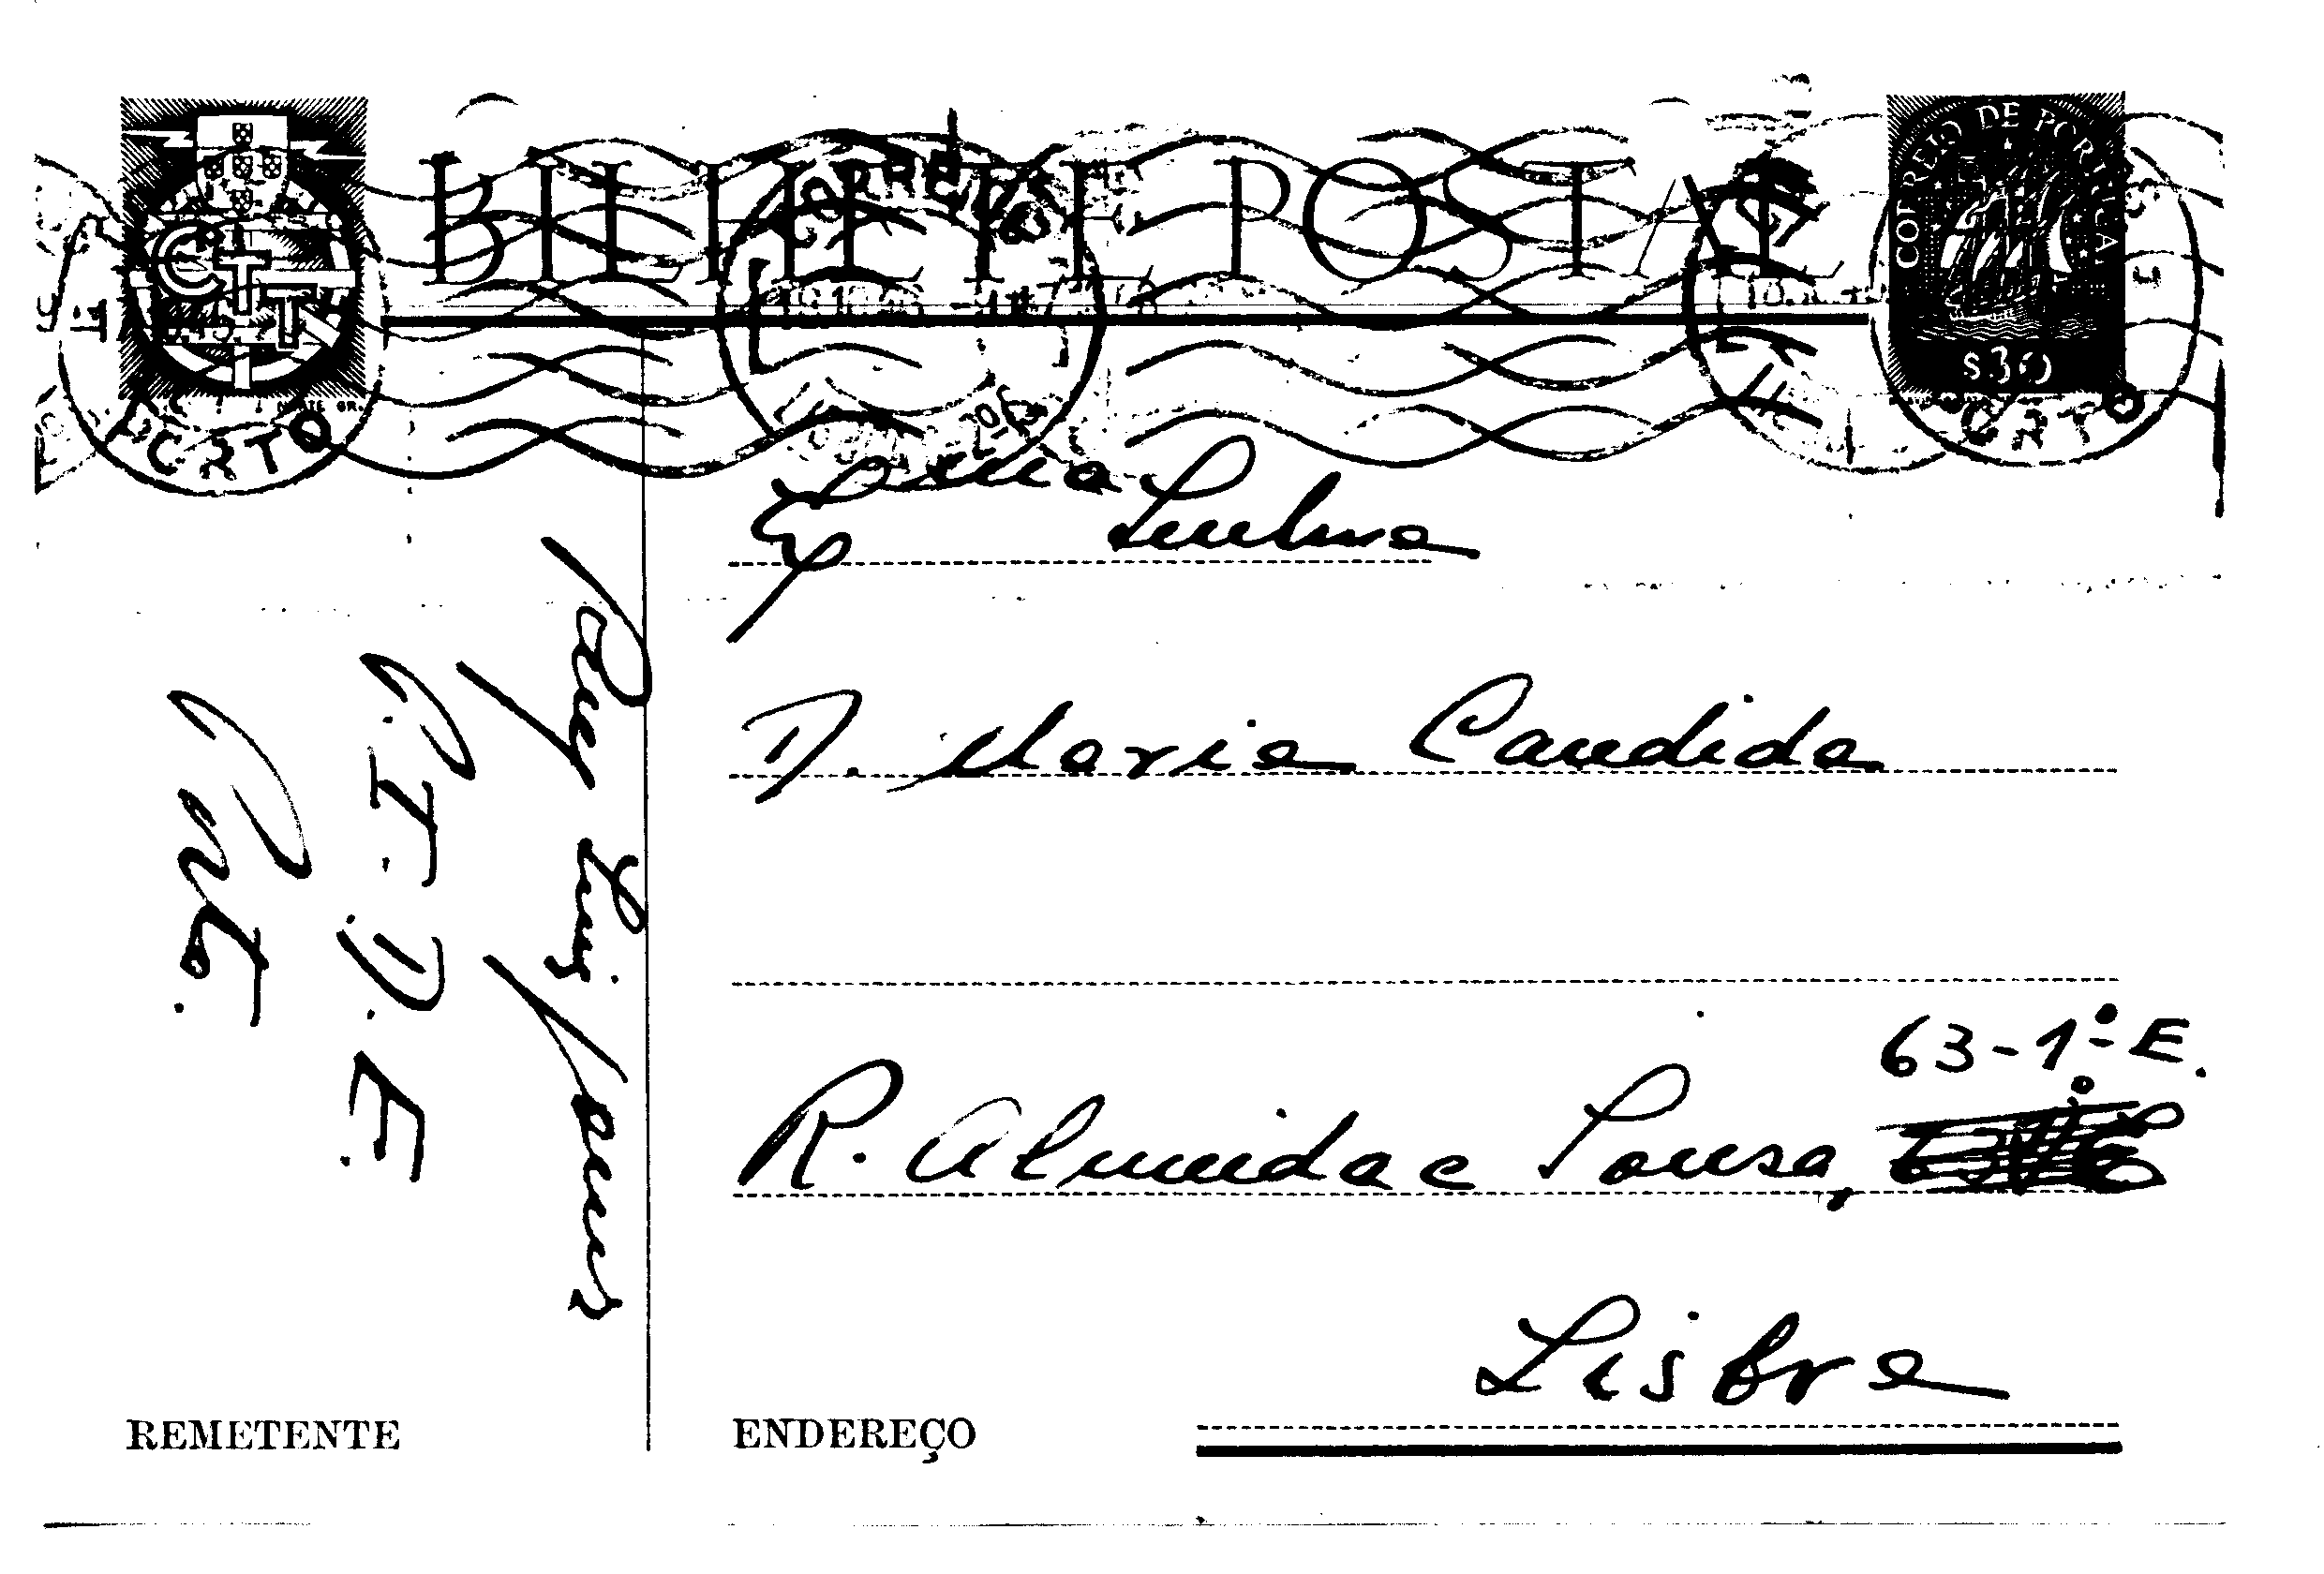 BILHETE POSTAL
CTT
CORREIO DE PORTUGAL
$30
PORTO
PORTO
Exma Senhora
D. Maria Candida
63-1º-E.
R. Almeida e Sousa,
Lisboa
Ruy Luís Gomes
C.I.D.E.
Porto.
REMETENTE
ENDEREÇO